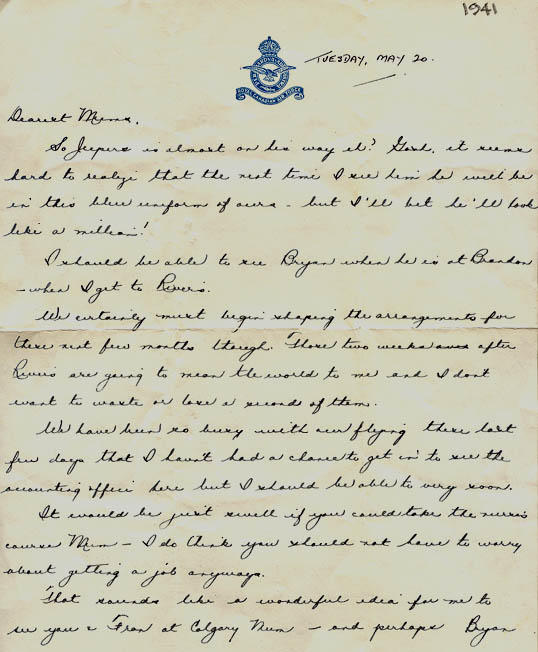 1941
ROYAL CANADIAN AIR FORCE
TUESDAY, MAY 20.
Dearest Mims,
So Jeepers is almost on his way eh? Gosh, it seems
hard to realize that the next time I see him he will be
in this blue uniform of ours - but I'll bet he'll look
like a million!
I should be able to see Bryan when he is at Brandon
- when I get to Rivers.
We certainly must begin shaping the arrangements for
these next few months though. Those two weeks after
Rivers are going to mean the world to me and I dont
want to waste or lose a seconds of them.
We have been so busy with air flying these last
few days that I havn't had a chance to get in to see the
accounting office here but I should be able to very soon.
It would be just swell if you could take the nurses
course Mim - I do think you should not have to worry
about getting a job anyways.
That sounds like a wonderful idea for me to
see you & Fran at Calgary Mum - and perhaps Bryan